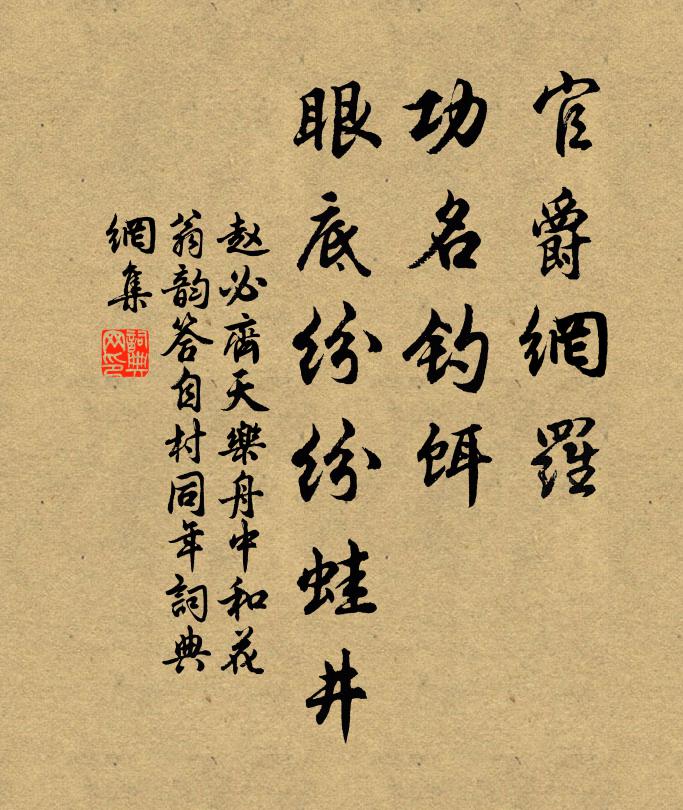 官爵網羅
功名钓饵
眼底纷纷蛙井
赵必齊天樂舟中和花
翁韵答自村同年詞典
網集
詞典
网印